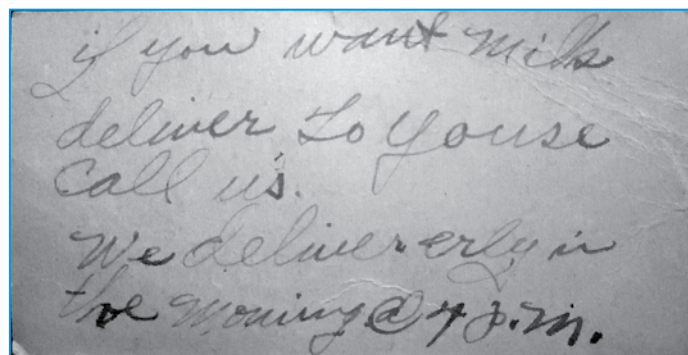 if you want milk
deliver to youse
Call us.
We deliver erly in
the moning @ 4 p.m.